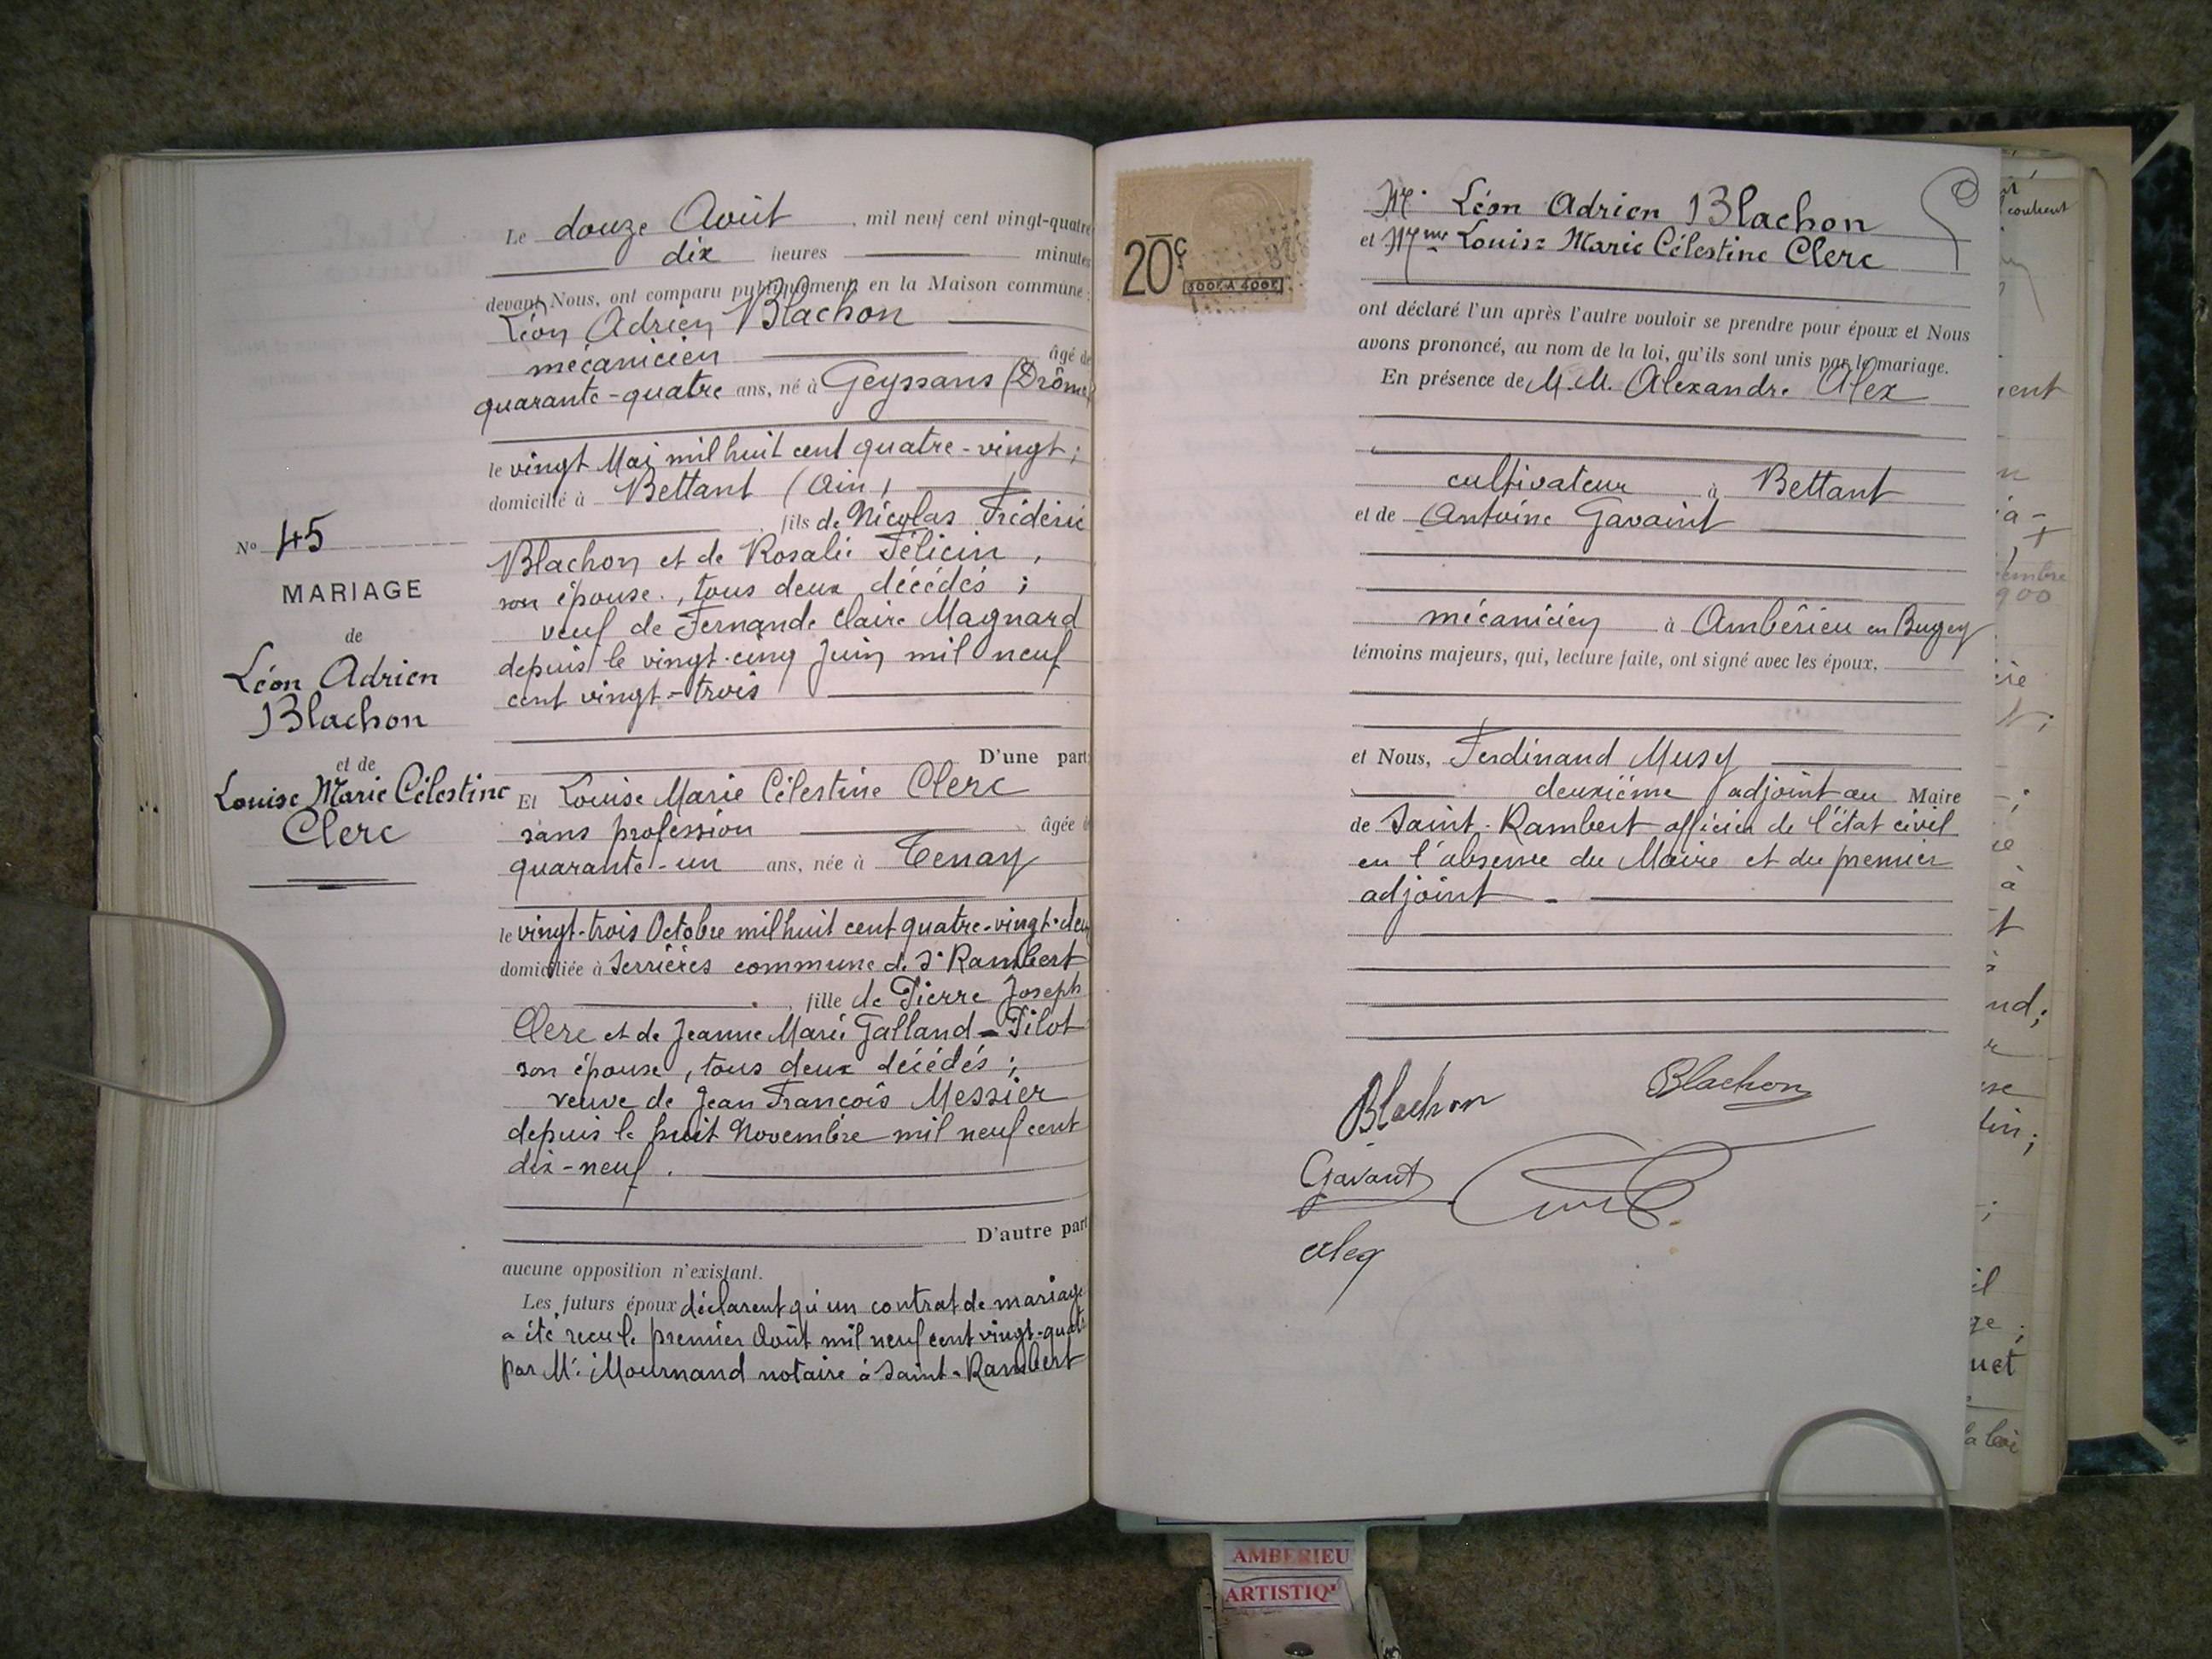 N° 45
MARIAGE
de
Léon Adrien
Blachon
et de
Louise Marie Célestine
Clerc
Le douze Août, mil neuf cent vingt-quatre
dix heures minutes
devant Nous, ont comparu publiquement en la Maison commune :
Léon Adrien Blachon
mécanicien âgé de
quarante-quatre ans, né à Geyssans (Drôme)
le vingt Mai mil huit cent quatre-vingt ;
domicilié à Bettant (Ain)
fils de Nicolas Frédéric
Blachon et de Rosalie Félicin,
son épouse, tous deux décédés ;
veuf de Fernande Claire Magnard
depuis le vingt-cinq Juin mil neuf
cent vingt-trois
D'une part
Et Louise Marie Célestine Clerc
sans profession âgée
quarante-un ans, née à Tenay
le vingt-trois Octobre mil huit cent quatre-vingt-deux
domiciliée à Serrières commune de St Rambert
fille de Pierre Joseph
Clerc et de Jeanne Marie Galland-Pilot
son épouse, tous deux décédés ;
veuve de Jean François Messier
depuis le huit Novembre mil neuf cent
dix-neuf.
D'autre part
aucune opposition n'existant.
Les futurs époux déclarent qu'un contrat de mariage
a été reçu le premier Août mil neuf cent vingt-quatre
par Me Mournand notaire à Saint-Rambert
20c
300F. A 400F.
Mr Léon Adrien Blachon
et Mme Louise Marie Célestine Clerc
ont déclaré l'un après l'autre vouloir se prendre pour époux et Nous
avons prononcé, au nom de la loi, qu'ils sont unis par le mariage.
En présence de M.M. Alexandre Alex
cultivateur à Bettant
et de Antoine Gavaint
mécanicien à Ambérieu en Bugey
témoins majeurs, qui, lecture faite, ont signé avec les époux.
et Nous, Ferdinand Musy
deuxième adjoint au Maire
de Saint-Rambert officier de l'état civil
en l'absence du Maire et du premier
adjoint.
Blachon Blachon
Gavant
Alex
AMBERIEU
ARTISTIQ